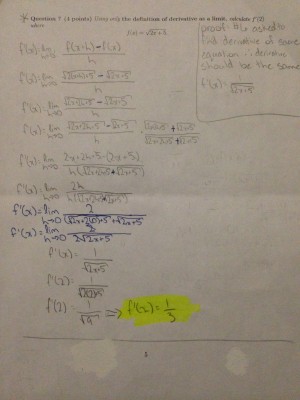 Question 7 (4 points) Using only the definition of derivative as a limit, calculate f'(2)
where
f(x) = √2x+5
f'(x)= lim h→0 f(x+h)-f(x) / h
f'(x)= lim h→0 √2(x+h)+5 - √2x+5 / h
f'(x)= lim h→0 √2x+2h+5 - √2x+5 / h
f'(x)= lim h→0 √2x+2h+5 - √2x+5 / h · √2x+2h+5 + √2x+5 / √2x+2h+5 + √2x+5
f'(x)= lim h→0 2x+2h+5-(2x+5) / h(√2x+2h+5+√2x+5)
f'(x)= lim h→0 2h / h(√2x+2h+5+√2x+5)
f'(x)= lim h→0 2 / (√2x+2(0)+5+√2x+5
f'(x)= lim h→0 2 / 2√2x+5
f'(x)= 1 / √2x+5
f'(2)= 1 / √2(2)+5
f'(2)= 1 / √9 => f'(2)= 1/3
proof: #6 asked to
find derivative of same
equation ∴ derivative
should be the same
f'(x)= 1 / √2x+5